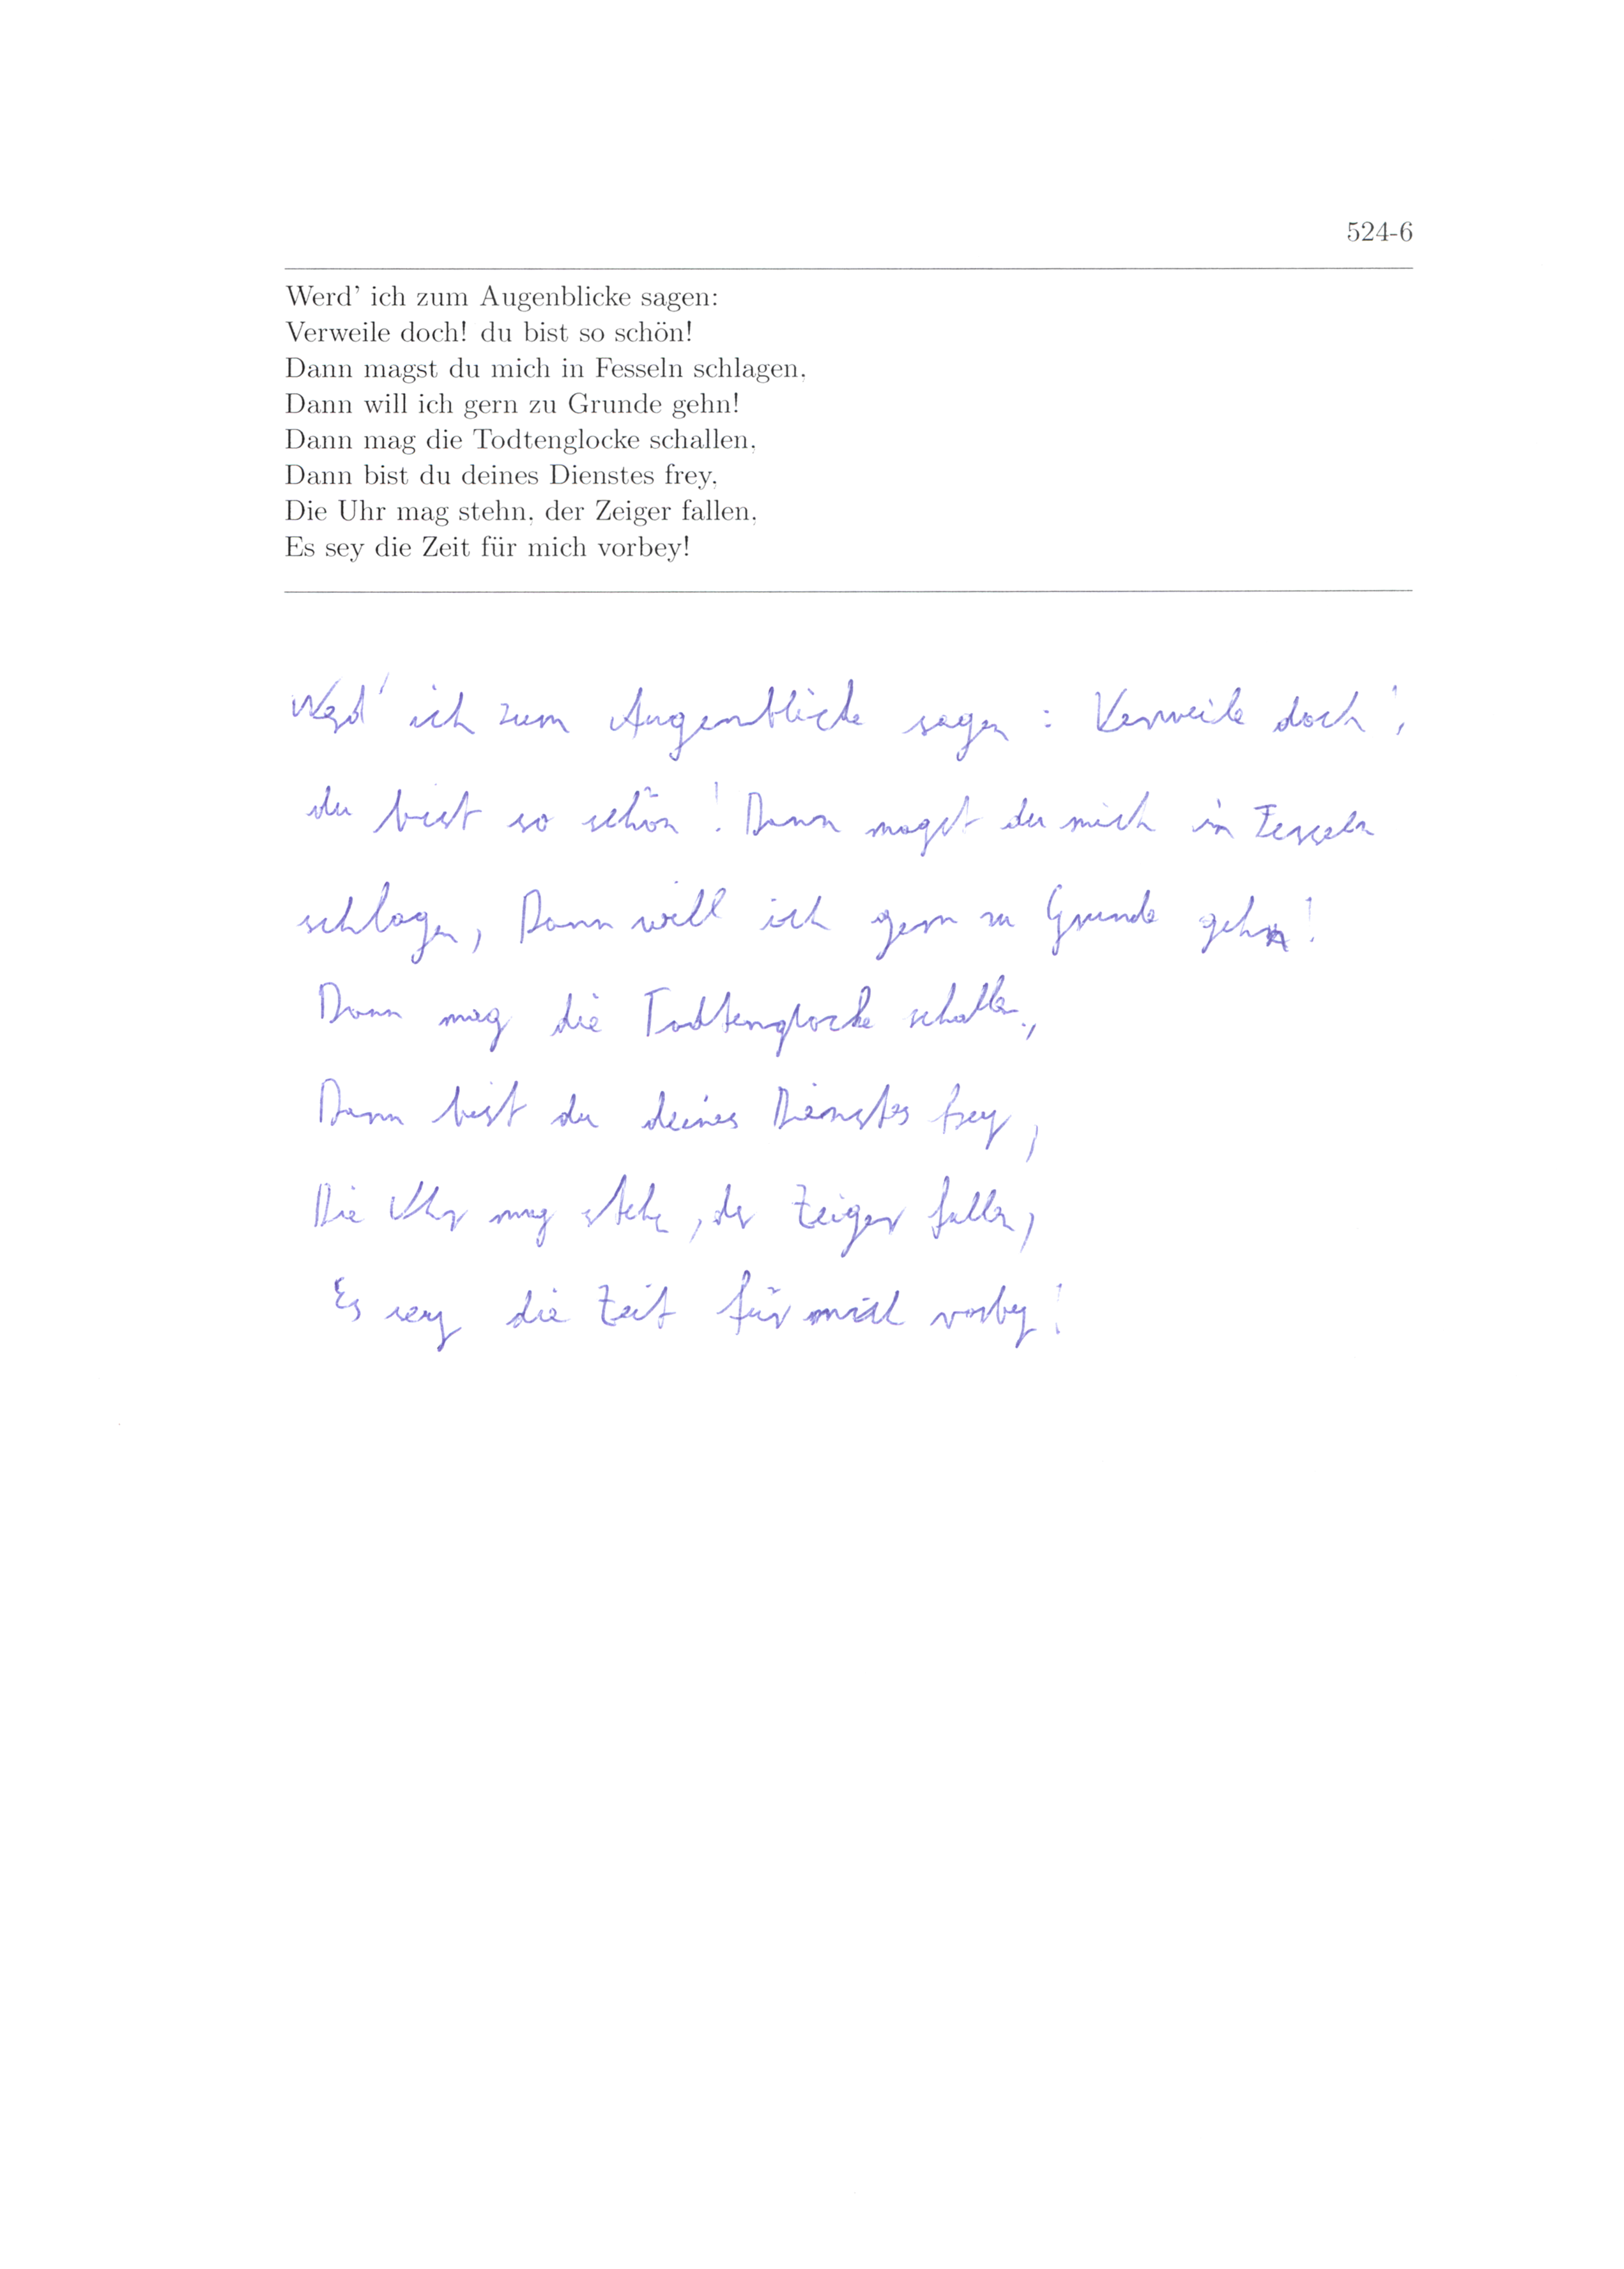 524-6
Werd' ich zum Augenblicke sagen:
Verweile doch! du bist so schön!
Dann magst du mich in Fesseln schlagen,
Dann will ich gern zu Grunde gehn!
Dann mag die Todtenglocke schallen,
Dann bist du deines Dienstes frey,
Die Uhr mag stehn, der Zeiger fallen,
Es sey die Zeit für mich vorbey!
Werd' ich zum Augenblicke sagen : Verweile doch!
du bist so schön! Dann magst du mich in Fesseln
schlagen, Dann will ich gern zu Grunde gehn!
Dann mag die Todtenglocke schallen,
Dann bist du deines Dienstes frey,
Die Uhr mag stehn, der Zeiger fallen,
Es sey die Zeit für mich vorbey!